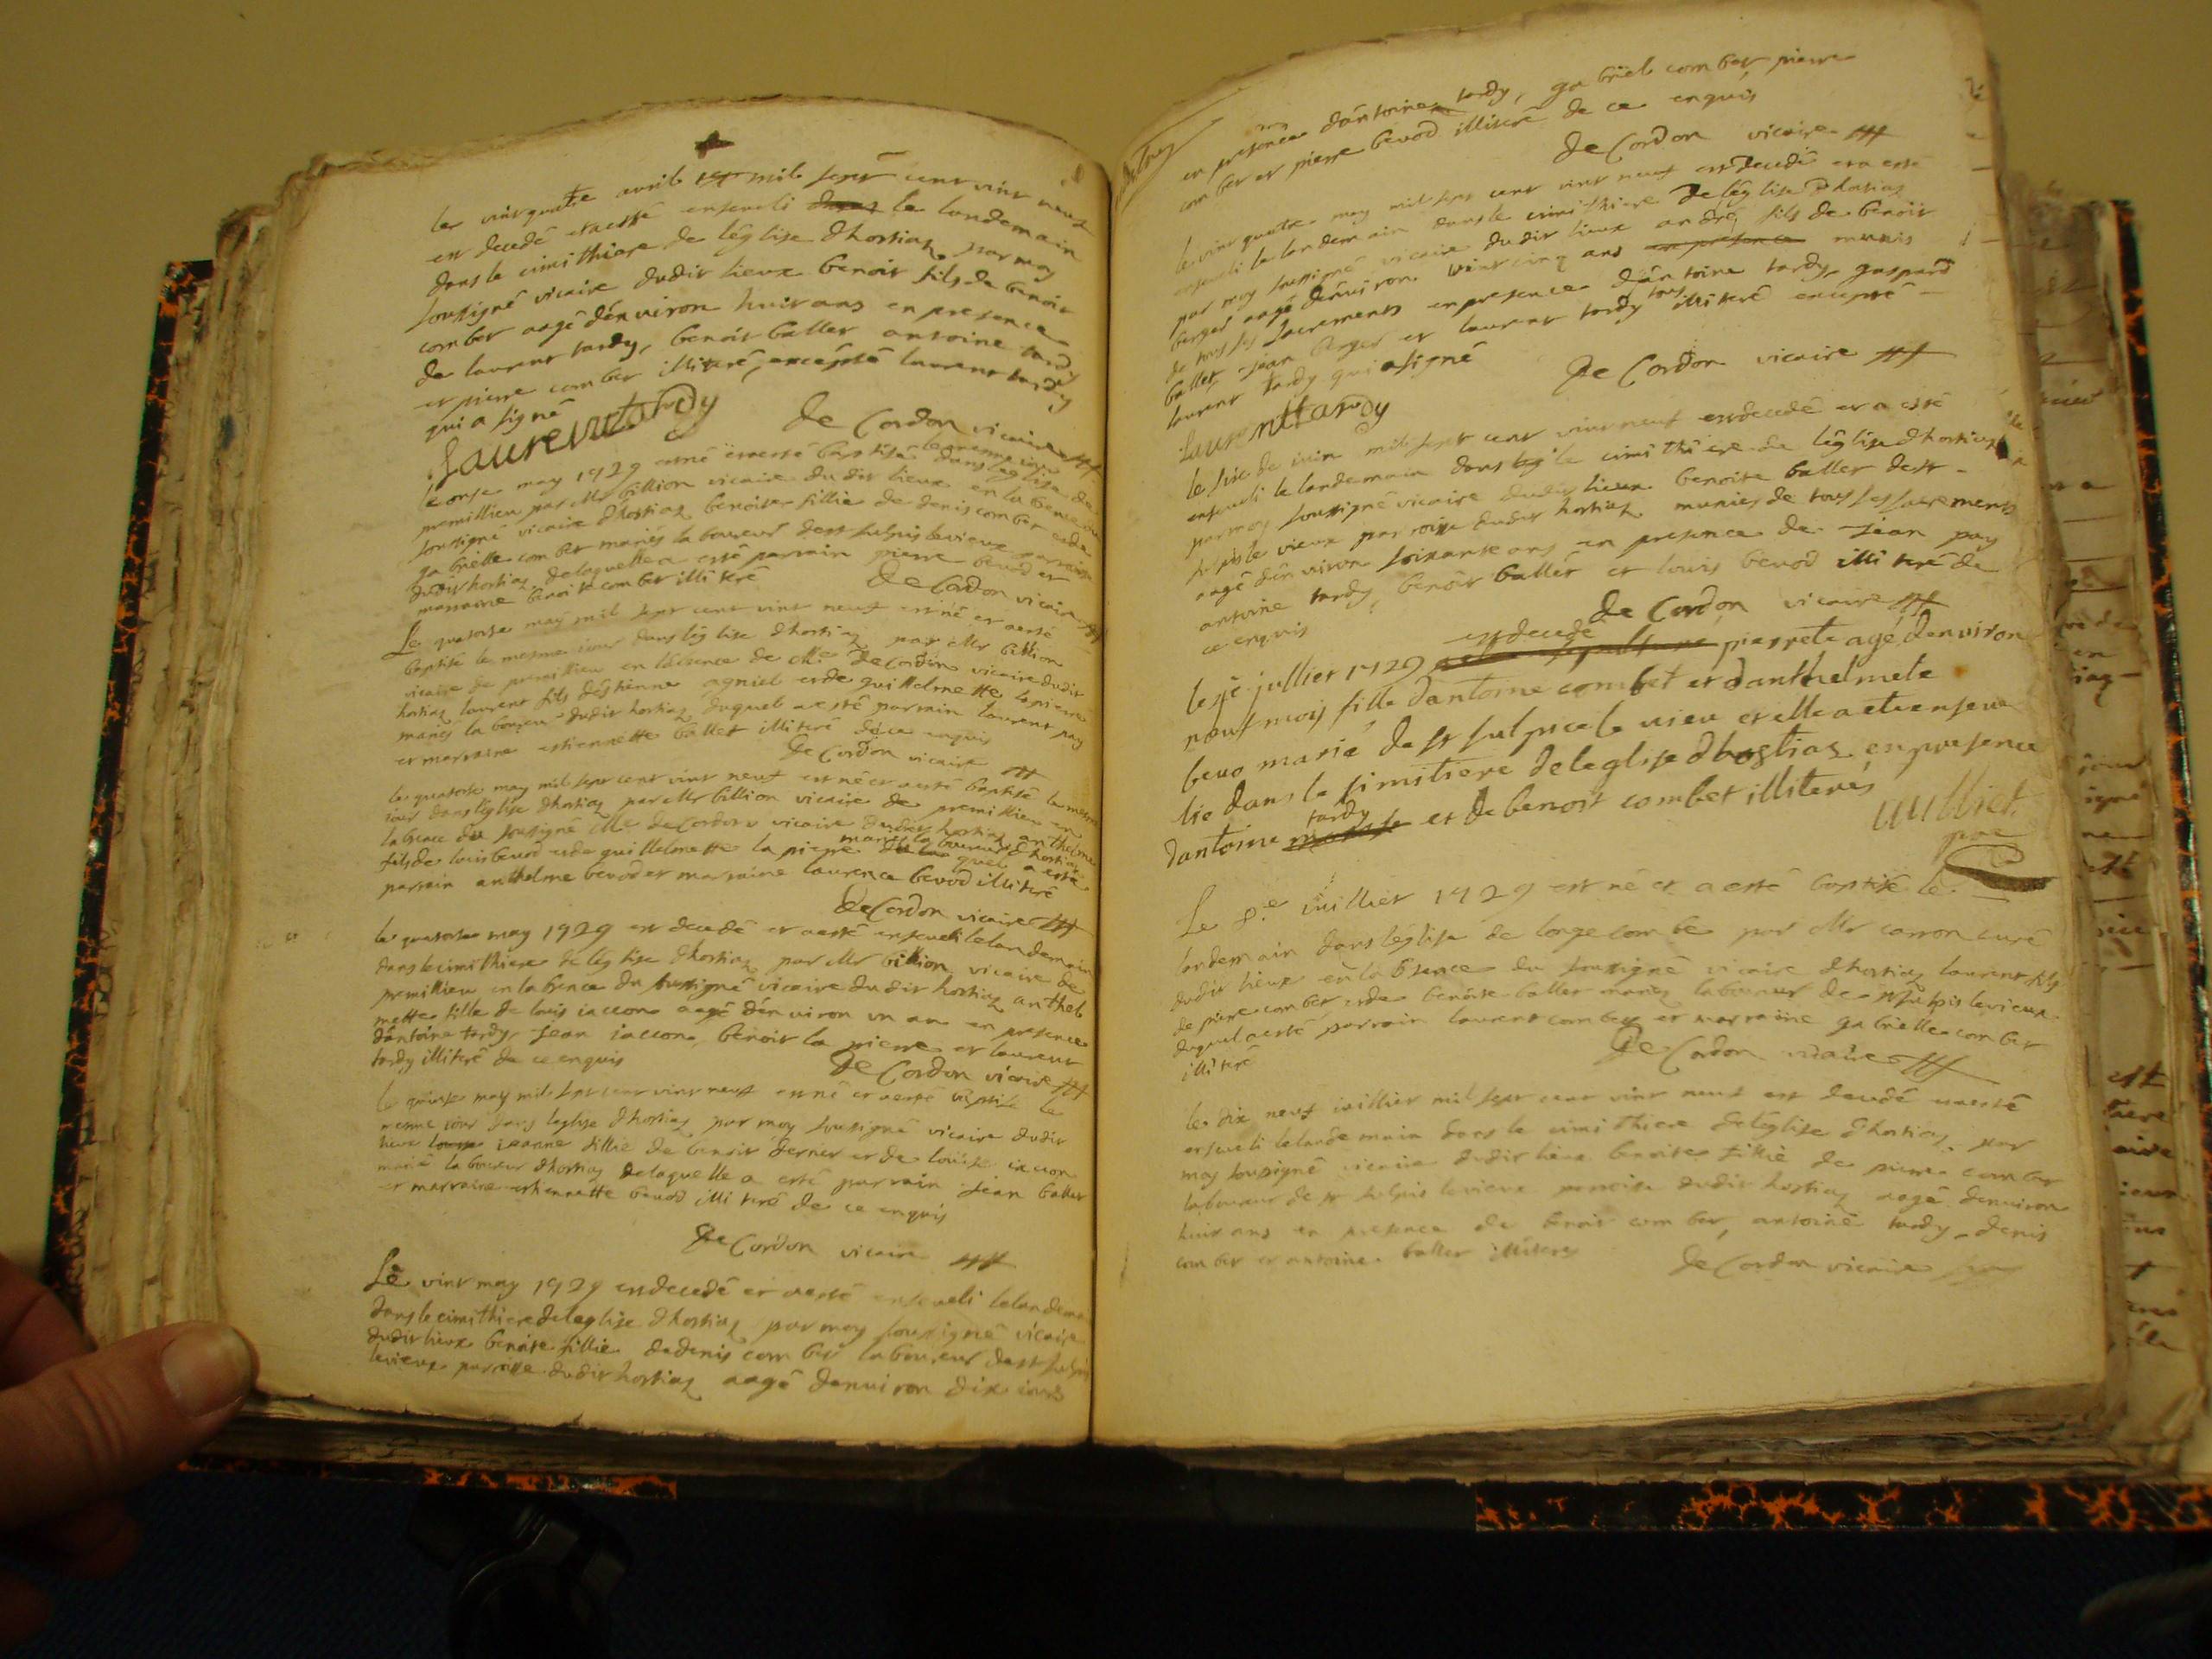 le vint quatre avril mil sept cent vint neuf
est decedé et a esté enseveli le landemain
dans le cimithiere de léglise dhostiaz par moy
soussigné vicaire dudit lieux benoit fils de benoit
combet aagé dénviron huit ans en presence
de laurent tardy, benoit ballet antoine tardy
et pierre combet illiteré, excépté laurent tardy
qui a signé
Laurent tardy De Cordon vicaire
le mesme iour
le onse may 1729 est né et a esté baptisé dans léglise de
premillieu par Mr billion vicaire du dit lieux en labcence du
soussigné vicaire dhostiaz benoite fillie de denis combet et de
gabrielle combet mariés laboureur de st sulpis le vieux parroisse
dudit hostiaz de laquelle a esté parrain pierre bevod et
marraine benoite combet illiteré De Cordon vicaire
Le quatorse may mil sept cent vint neuf est né et a esté
baptisé le mesme iour dans léglise dhostiaz par Mr billion
vicaire de premillieu en labcence de Mre De Cordon vicaire dudit
hostiaz laurent fils déstienne agniel et de guillelmette lapierre
mariés laboureur dudit hostiaz duquel a esté parrain laurent pay
et marraine estiennette ballet illiteré de ce enquis
De Cordon vicaire
le quatorse may mil sept cent vint neuf est né et a esté baptisé le mesme
iour dans léglise dhostiaz par Mr billion vicaire de premillieu en
labcence du soussigné Mre de Cordon vicaire dudit hostiaz anthelme
fils de louis bevod et de guillelmette lapierre mariés laboureur dhostiaz duquel a esté
parrain anthelme bevod et marraine laurence bevod illiteré
De Cordon vicaire
le quatorse may 1729 est decedé et a esté enseveli le landemain
dans le cimithiere de léglise dhostiaz par Mr billion vicaire de
premillieu en labcence du soussigné vicaire dudit hostiaz anthel
mette fille de louis iaccon aagé dénviron un an en presence
dántoine tardy, Jean iaccon, benoit la pierre et laurent
tardy illiteré de ce enquis
De Cordon vicaire
le quinse may mil sept cent vint neuf est né et a esté baptisé le
mesme iour dans léglise dhostiaz par moy soussigné vicaire dudit
lieux ieanne fillie de benoit dernet et de louise iaccon
marié laboureur dhostiaz de laquelle a esté parrain Jean ballet
et marraine estiennette bevod illiteré de ce enquis
De Cordon vicaire
Le vint may 1729 est decedé et a esté enseveli le landemain
dans le cimithiere de léglise dhostiaz par moy soussigné vicaire
dudit lieux benoite fillie de denis combet laboureur de st sulpis
le vieux parroisse dudit hostiaz aagé denviron dix iours
en presence dántoine tardy, gabriel combet pierre
combet et pierre bevod illiteré de ce enquis
De Cordon vicaire
le vint quatre may mil sept cent vint neuf est decedé et a esté
enseveli le landemain dans le cimithiere de léglise dhostiaz
par moy soussigné vicaire dudit lieux andré fils de benoit
berger aagé dénviron vint cinq ans en presence munis
de tous ses sacrements en presence dántoine tardy, gaspard
ballet, Jean berger et laurent tardy tous illiteré excepté
laurent tardy qui a signé
Laurent tardy De Cordon vicaire
le six de iuin mil sept cent vint neuf est decedé et a esté
enseveli le landemain dans le cimithiere de léglise dhostiaz
par moy soussigné vicaire dudit lieux benoite ballet de st
sulpis le vieux parroisse dudit hostiaz munies de tous ses sacrements
aagé dénviron soixante ans en presence de Jean pay
antoine tardy, benoit ballet et louis bevod illiteré de
ce enquis
De Cordon vicaire
est decede
le jullier 1729 pierrete agé denviron
neuf mois fille dantoine combet et danthelmete
bevo marié de st sulpice le vieu et elle a eté enseve
lie dans le simitiere de leglise dhostiaz en presence
dantoine tardy et de benoit combet illiterés
Le 8e iuillier 1729 est né et a esté baptisé le
landemain dans léglise de longecombe par Mr carron curé
dudit lieux en labcence du soussigné vicaire dhostiaz laurent fils
de pierre combet et de benoite ballet mariez laboureur de st sulpis le vieux
duquel a esté parrain laurent combet et marraine gabrielle combet
illiteré
De Cordon vicaire
le dix neuf iuillier mil sept cent vint neuf est decedé et a esté
enseveli le landemain dans le cimithiere de léglise dhostiaz par
moy soussigné vicaire dudit lieux benoite fillie de pierre combet
laboureur de st sulpis le vieux parroisse dudit hostiaz aagé denviron
huit ans en presence de benoit combet, antoine tardy, denis
combet et antoine ballet illiteres
De Cordon vicaire